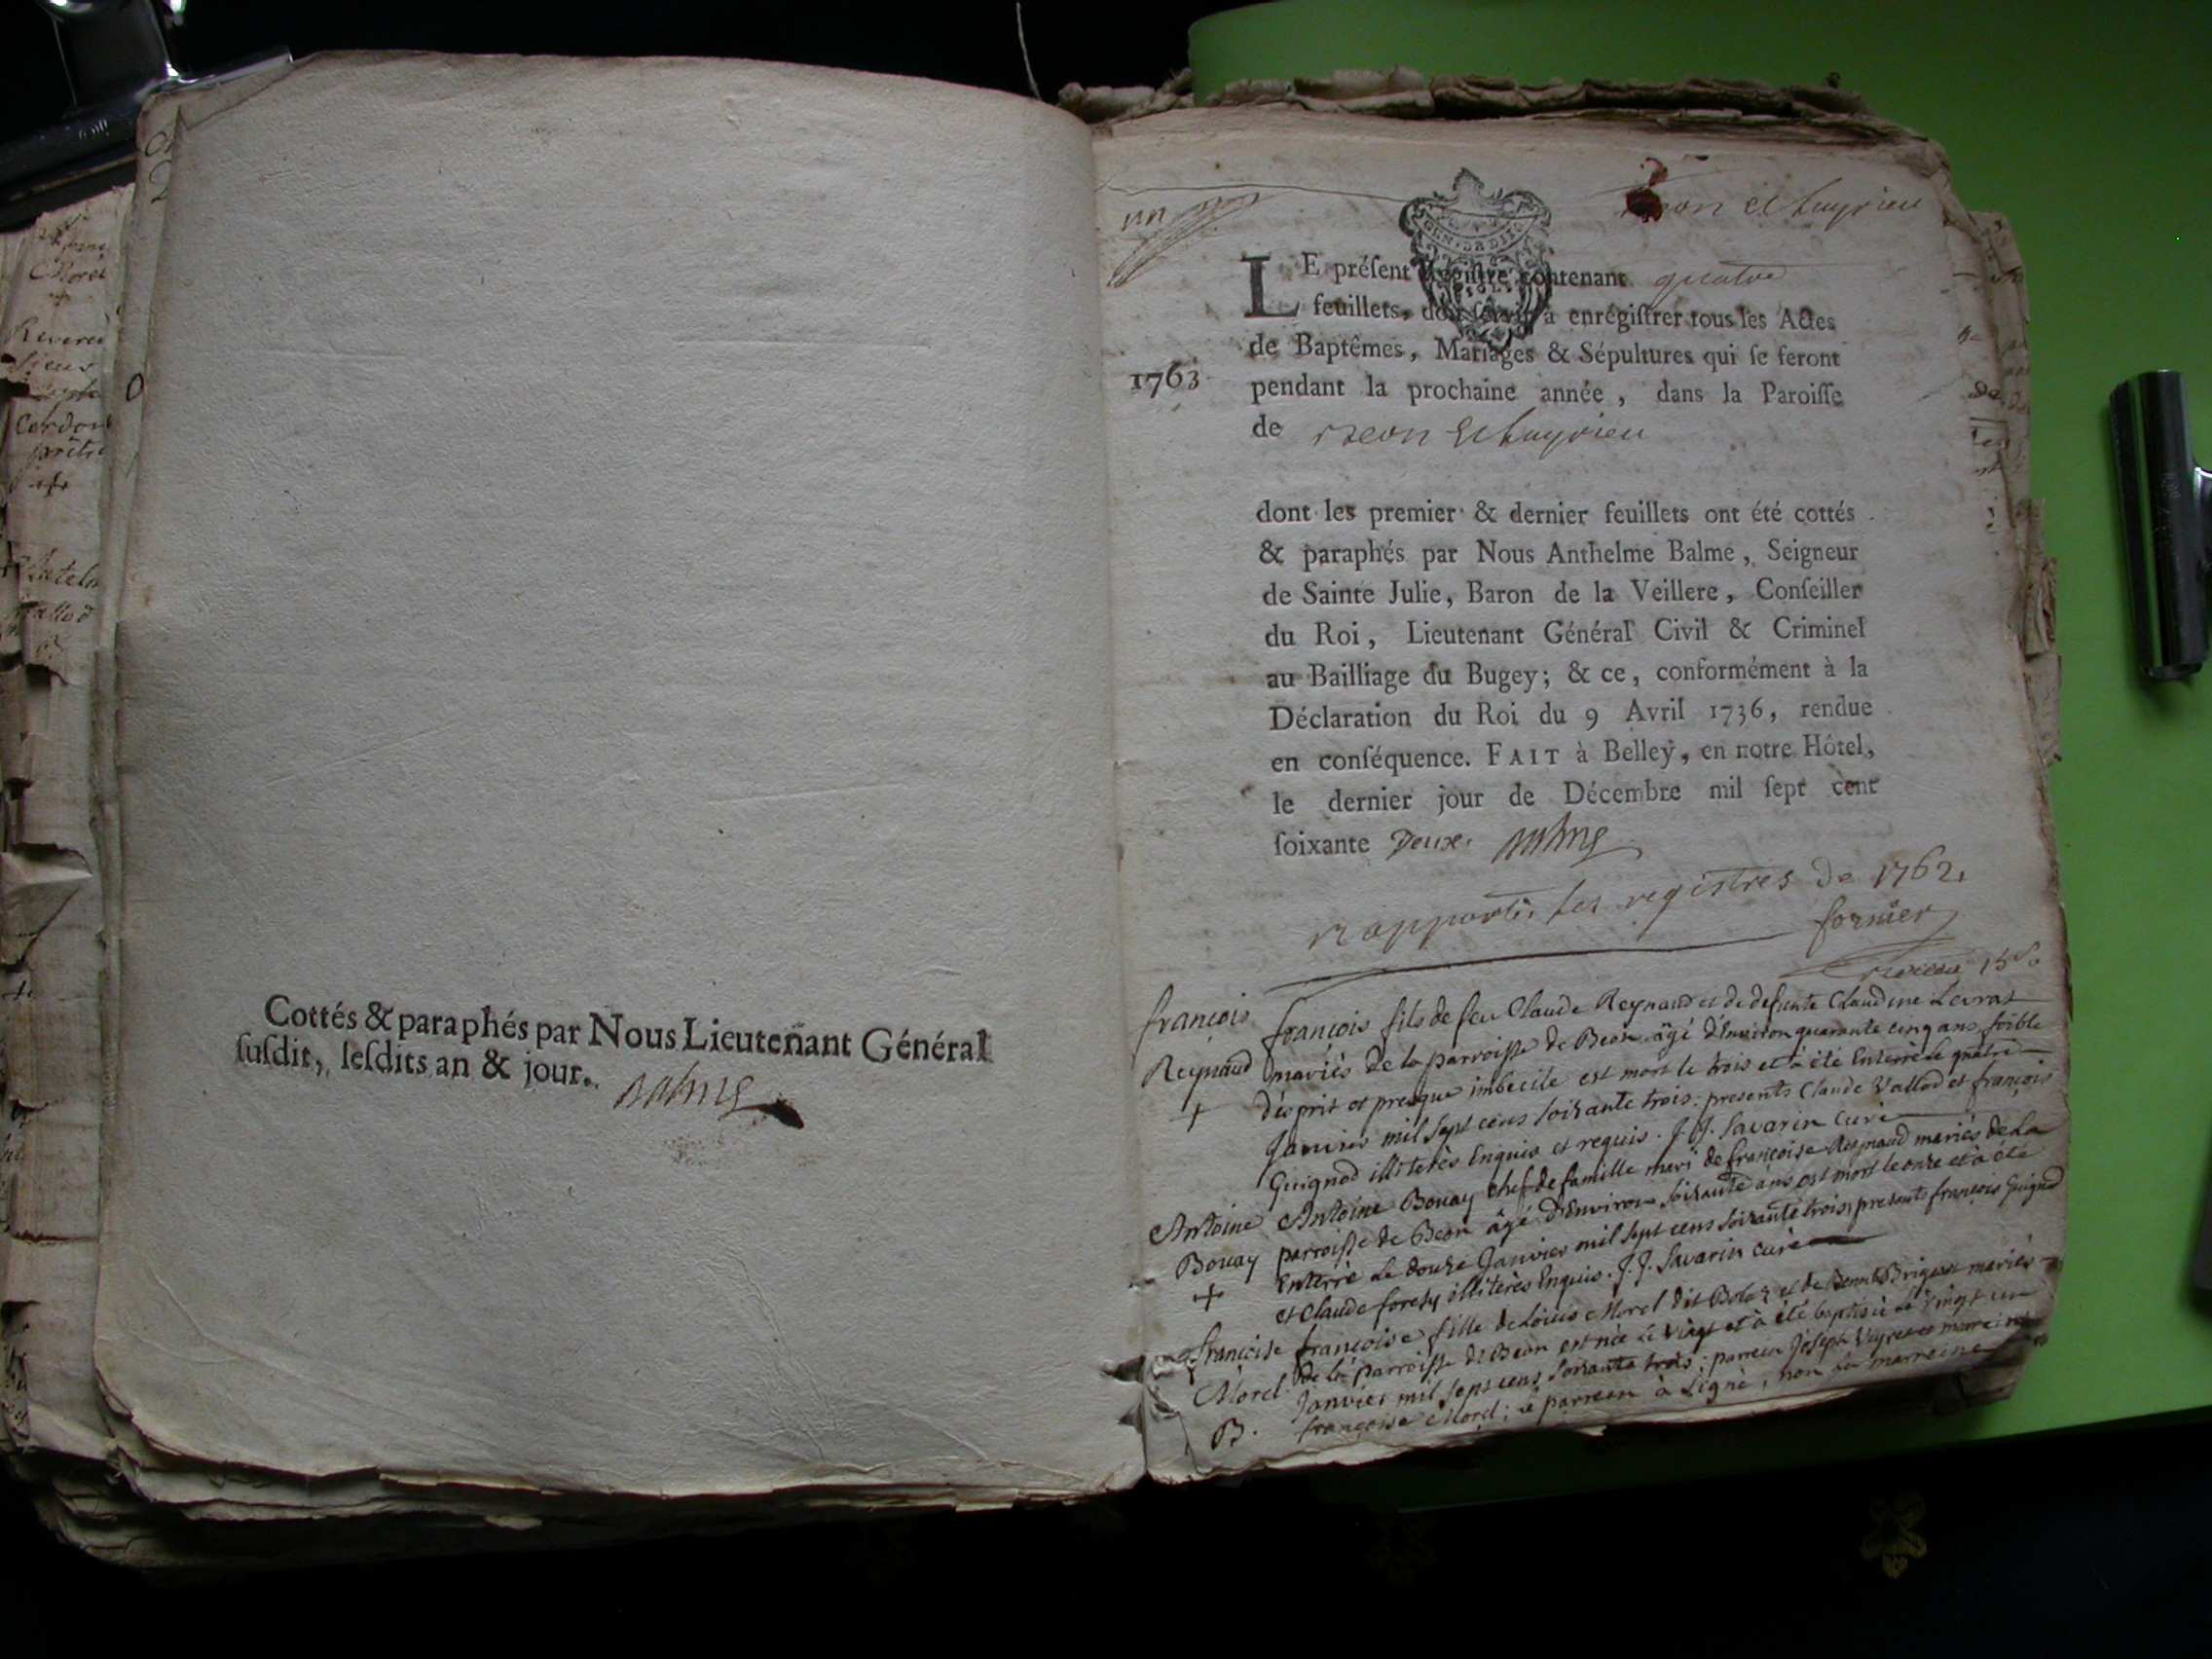 Cottés & paraphés par Nous Lieutenant Général
ſuſdit, leſdits an & jour.
Balme
un
Beon et Luyrieu
GEN. DE DIJON
LE préſent Regiſtre contenant quatre
feuillets, doit ſervir à enrégiſtrer tous les Actes
de Baptêmes, Mariages & Sépultures qui ſe feront
1763
pendant la prochaine année, dans la Paroiſſe
de Beon et Luyrieu
dont les premier & dernier feuillets ont été cottés
& paraphés par Nous Anthelme Balme, Seigneur
de Sainte Julie, Baron de la Veillere, Conſeiller
du Roi, Lieutenant Général Civil & Criminel
au Bailliage du Bugey; & ce, conformément à la
Déclaration du Roi du 9 Avril 1736, rendue
en conſéquence. FAIT à Belley, en notre Hôtel,
le dernier jour de Décembre mil ſept cent
ſoixante Deux. Balme
rapporté les registres de 1762.
fornier
françois
Reynaud
+
françois fils de feu Claude Reynaud et de defunte Claudine Levrat
mariés de la parroisse de Beon âgé d'Environ quarante cinq ans, foible
d'esprit et presque imbecile est mort le trois et à été Enterré le quatre
Janvier mil sept cens soixante trois. presents Claude Vallod et françois
Guignod illiterés Enquis et requis. J. J. Savarin curé
Antoine
Bouay
+
Antoine Bouay chef de famille mari de françoise Reynaud mariés de La
parroisse de Beon âgé d'Environ soixante ans est mort le onze et à été
Enterré Le douze Janvier mil sept cens soixante trois, presents françois Guignod
et Claude forest illiterés Enquis. J. J. Savarin curé
françoise
Morel
B.
françoise fille de Loüis Morel dit Bolaz et de mariés
de la parroisse de Beon est née Le vingt et à été baptisée Le vingt un
Janvier mil sept cens soixante trois; parrein Joseph et marreine
françoise Morel; le parrein à signé, non la marreine